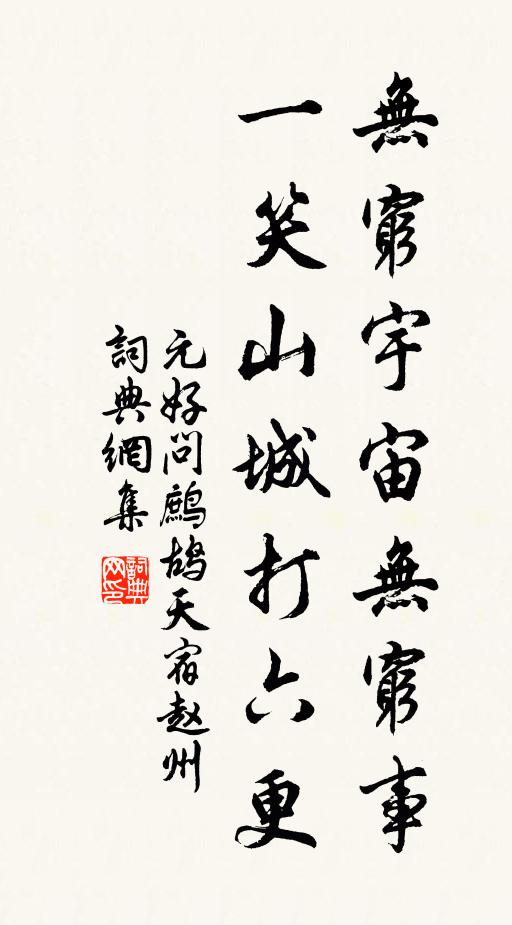 無窮宇宙無窮事
一笑山城打六更
元好問鷓鴣天宿赵州
詞典網集
詞典网印